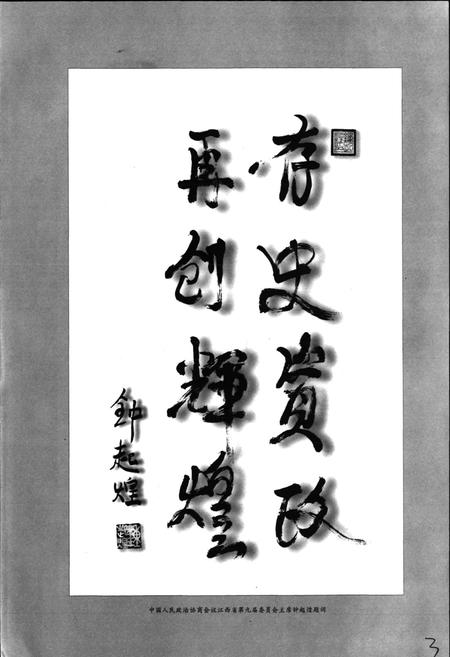 存史资政
再创辉煌
钟起煌
中国人民政治协商会议江西省第九届委员会主席钟起煌题词
3